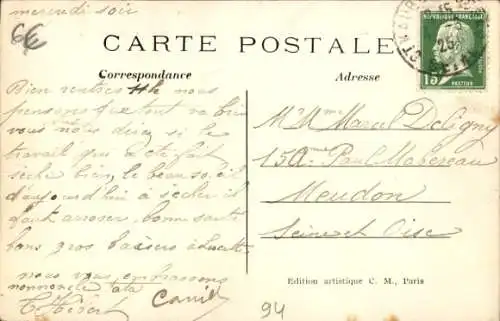 mercredi soir
6€
CARTE POSTALE
Correspondance
Adresse
REPUBLIQUE FRANÇAISE
15
PASTEUR
Bien rentrés 4h nous
pensons que tout va bien
vous nous direz si le
travail qui a été fait
sèche bien, le beau soleil
d'aujourd'hui à sécher il
faut arroser, bonne santé
bons gros baisers à
nous vous embrassons
T. Hébert
Mr Mme Marcel Deligny
15 Paul
Meudon
Seine et Oise
Edition artistique C. M., Paris
94